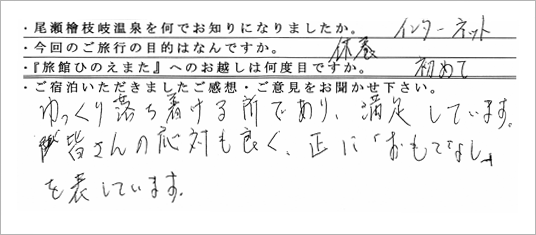 ・尾瀬檜枝岐温泉を何でお知りになりましたか。 インターネット
・今回のご旅行の目的はなんですか。 休養
・『旅館ひのえまた』へのお越しは何度目ですか。 初めて
・ご宿泊いただきましたご感想・ご意見をお聞かせ下さい。
ゆっくり落ち着ける所であり、満足しています。
皆さんの応対も良く、正に「おもてなし」
を表しています。